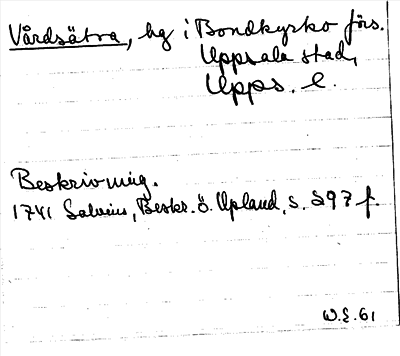 Vårdsätra, hg i Bondkyrko förs.
Uppsala stad,
Upps. l.
Beskrivning.
1741 Salvius, Beskr. ö. Upland, s. 297 f.
W.S. 61